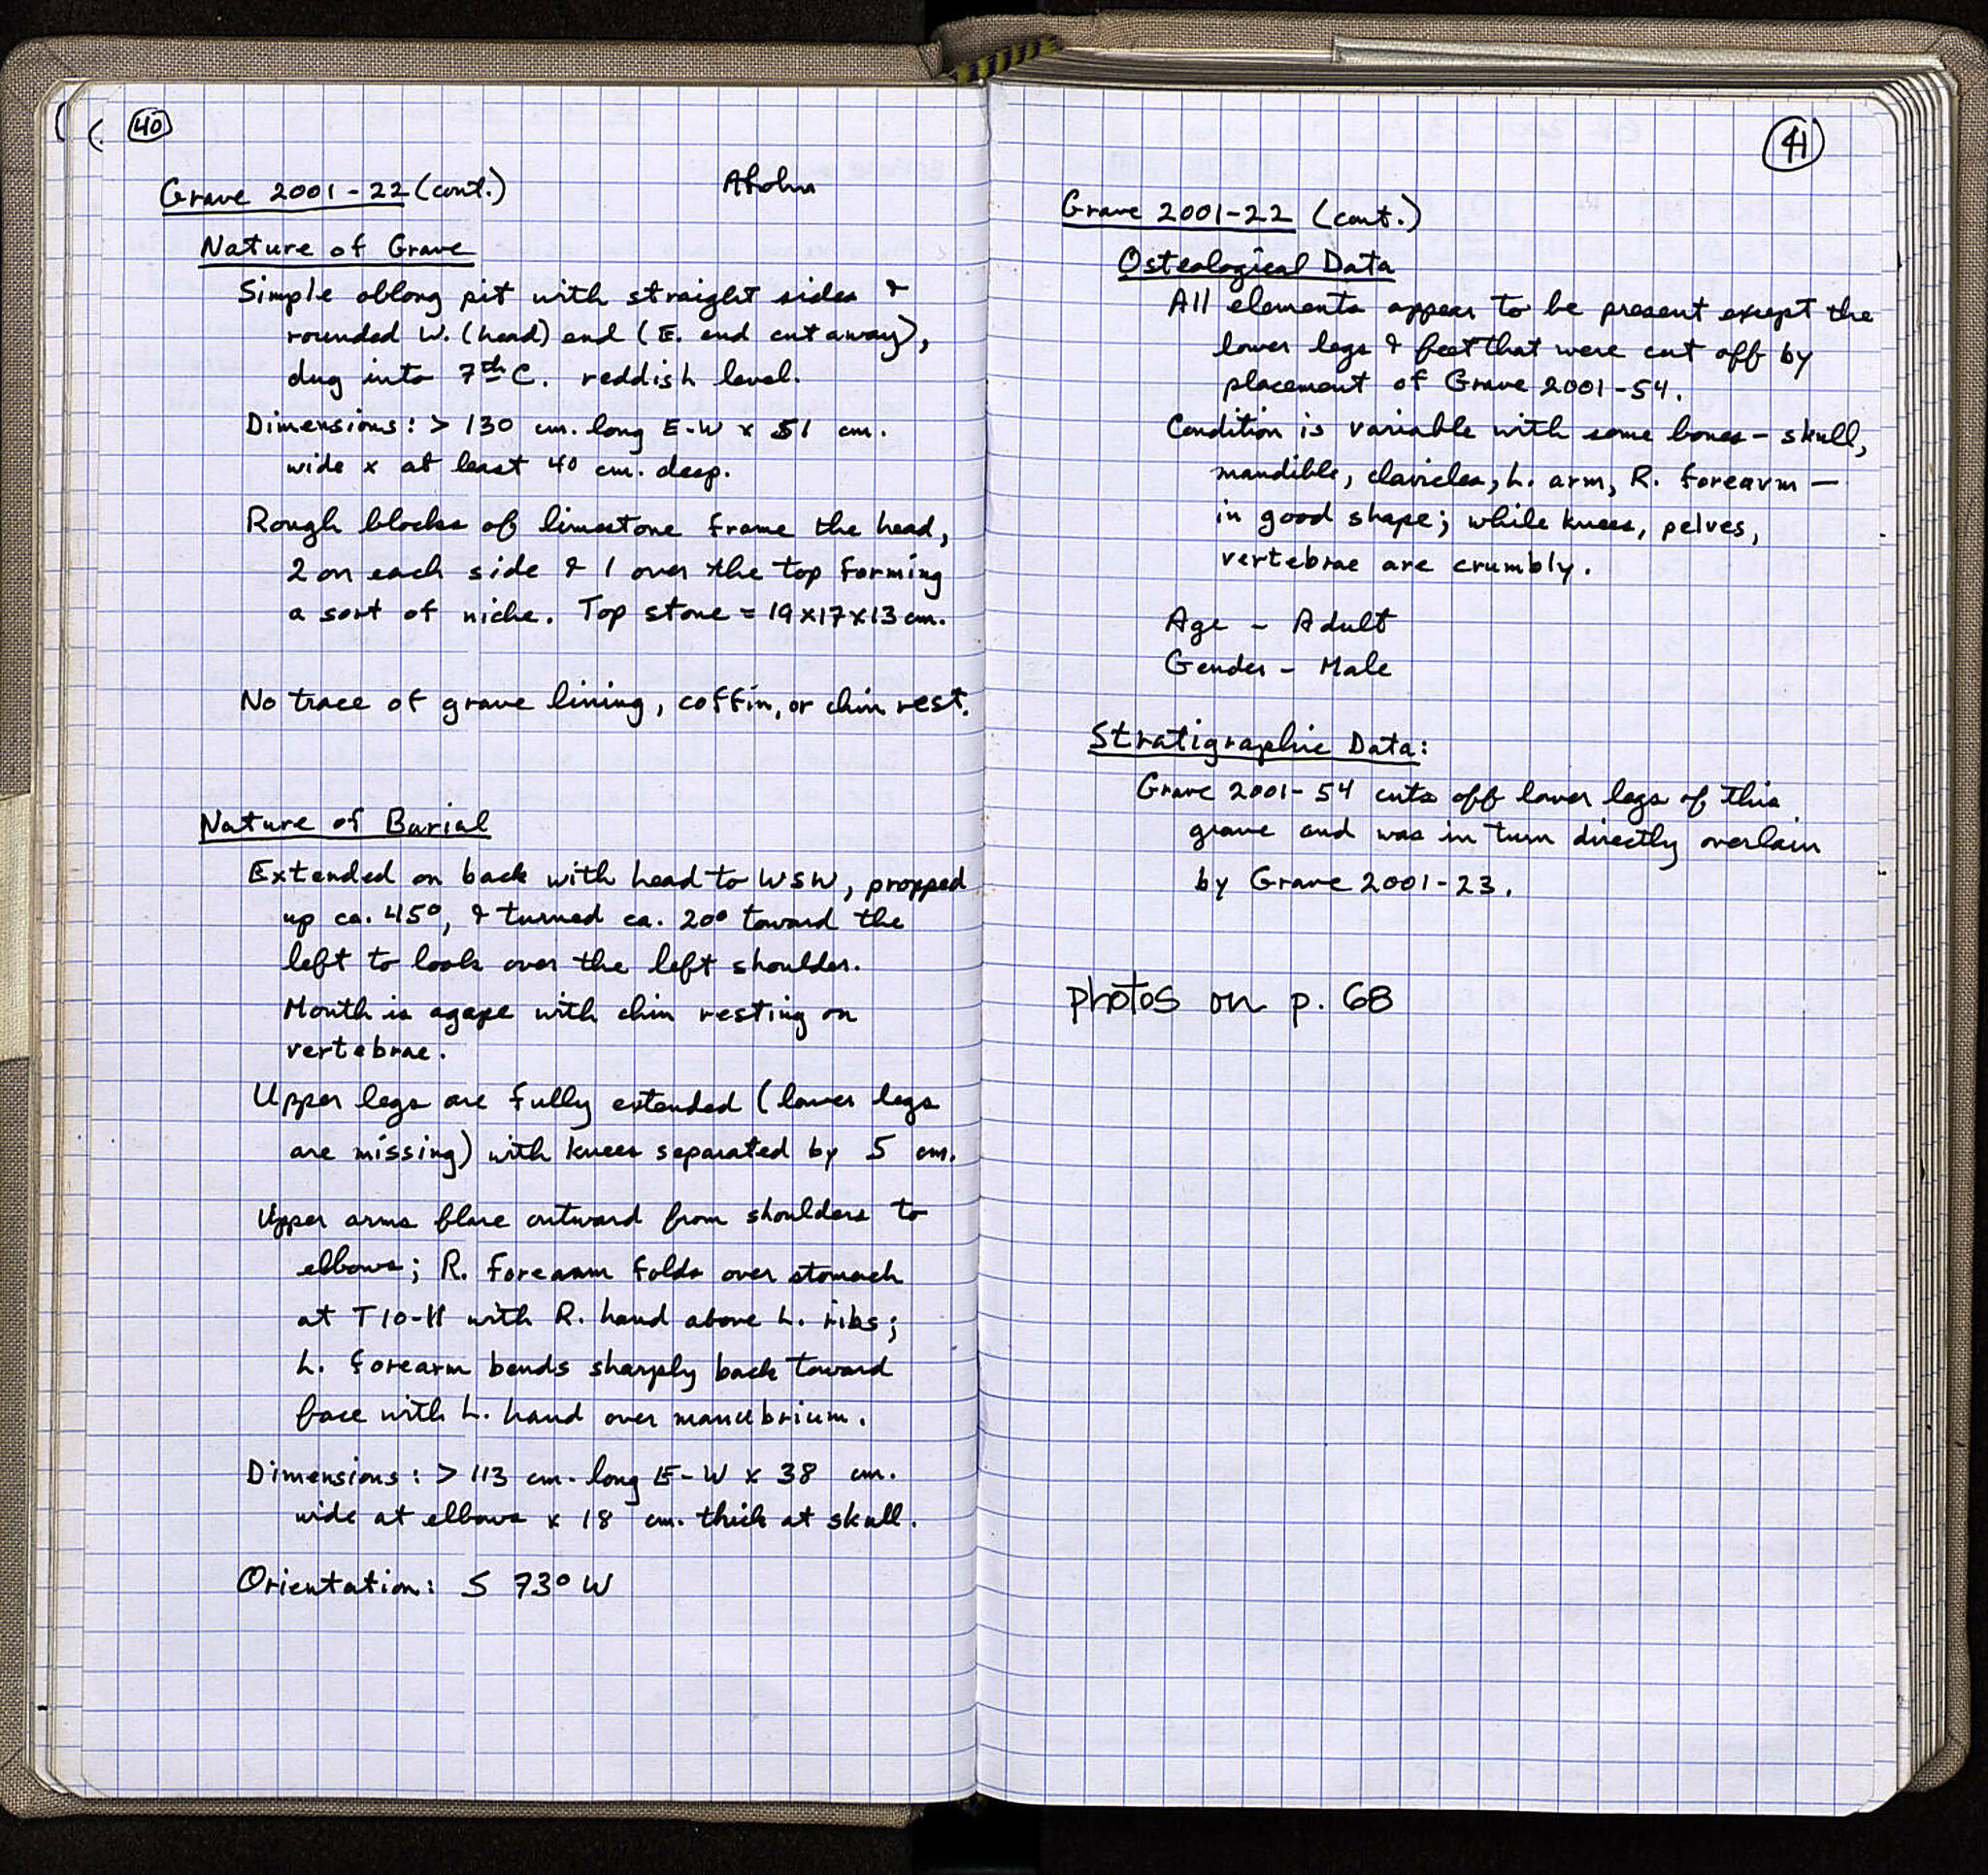 40
Grave 2001-22 (cont.)
Nature of Grave
Simple oblong pit with straight sides &
rounded W. (head) end (E. end cut away),
dug into 7th C. reddish level.
Dimensions: > 130 cm. long E-W x 51 cm.
wide x at least 40 cm. deep.
Rough blocks of limestone frame the head,
2 on each side & 1 over the top forming
a sort of niche. Top stone = 19x17x13 cm.
No trace of grave lining, coffin, or chin rest.
Nature of Burial
Extended on back with head to WSW, propped
up ca. 45°, & turned ca. 20° toward the
left to look over the left shoulder.
Mouth is agape with chin resting on
vertebrae.
Upper legs are fully extended (lower legs
are missing) with knees separated by 5 cm.
Upper arms flare outward from shoulders to
elbows; R. forearm folds over stomach
at T10-11 with R. hand above L. ribs;
L. forearm bends sharply back toward
face with L. hand over manubrium.
Dimensions: > 113 cm. long E-W x 38 cm.
wide at elbows x 18 cm. thick at skull.
Orientation: S 73° W
41
Grave 2001-22 (cont.)
Osteological Data
All elements appear to be present except the
lower legs & feet that were cut off by
placement of Grave 2001-54.
Condition is variable with some bones - skull,
mandible, clavicles, L. arm, R. forearm -
in good shape; while knees, pelves,
vertebrae are crumbly.
Age - Adult
Gender - Male
Stratigraphic Data:
Grave 2001-54 cuts off lower legs of this
grave and was in turn directly overlain
by Grave 2001-23.
photos on p. 68